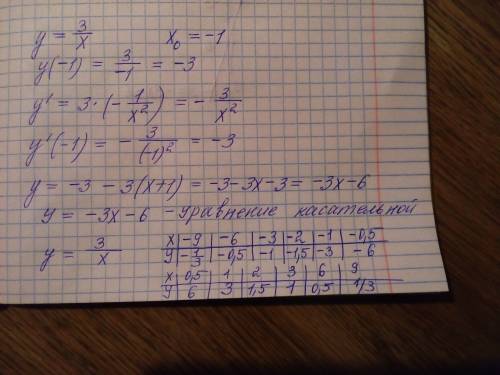 y = 3/x     x₀ = -1
y(-1) = 3/-1 = -3
y' = 3·(-1/x²) = -3/x²
y'(-1) = -3/(-1)² = -3
y = -3 -3(x+1) = -3-3x-3 = -3x-6
y = -3x-6 - уравнение касательной
y = 3/x
x | -9 | -6 | -3 | -2 | -1 | -0,5
y | -1/3 | -0,5 | -1 | -1,5 | -3 | -6
x | 0,5 | 1 | 2 | 3 | 6 | 9
y | 6 | 3 | 1,5 | 1 | 0,5 | 1/3